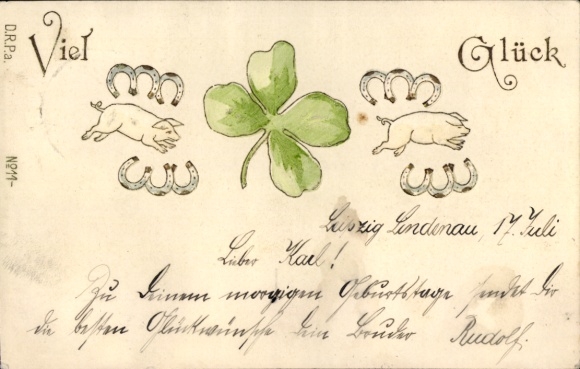 D.R.P.a.
Viel Glück
No 11-
Leipzig Lindenau, 17. Juli
Lieber Karl!
Zu Deinem morgigen Geburtstage sendet Dir
die besten Glückwünsche dein Bruder Rudolf.